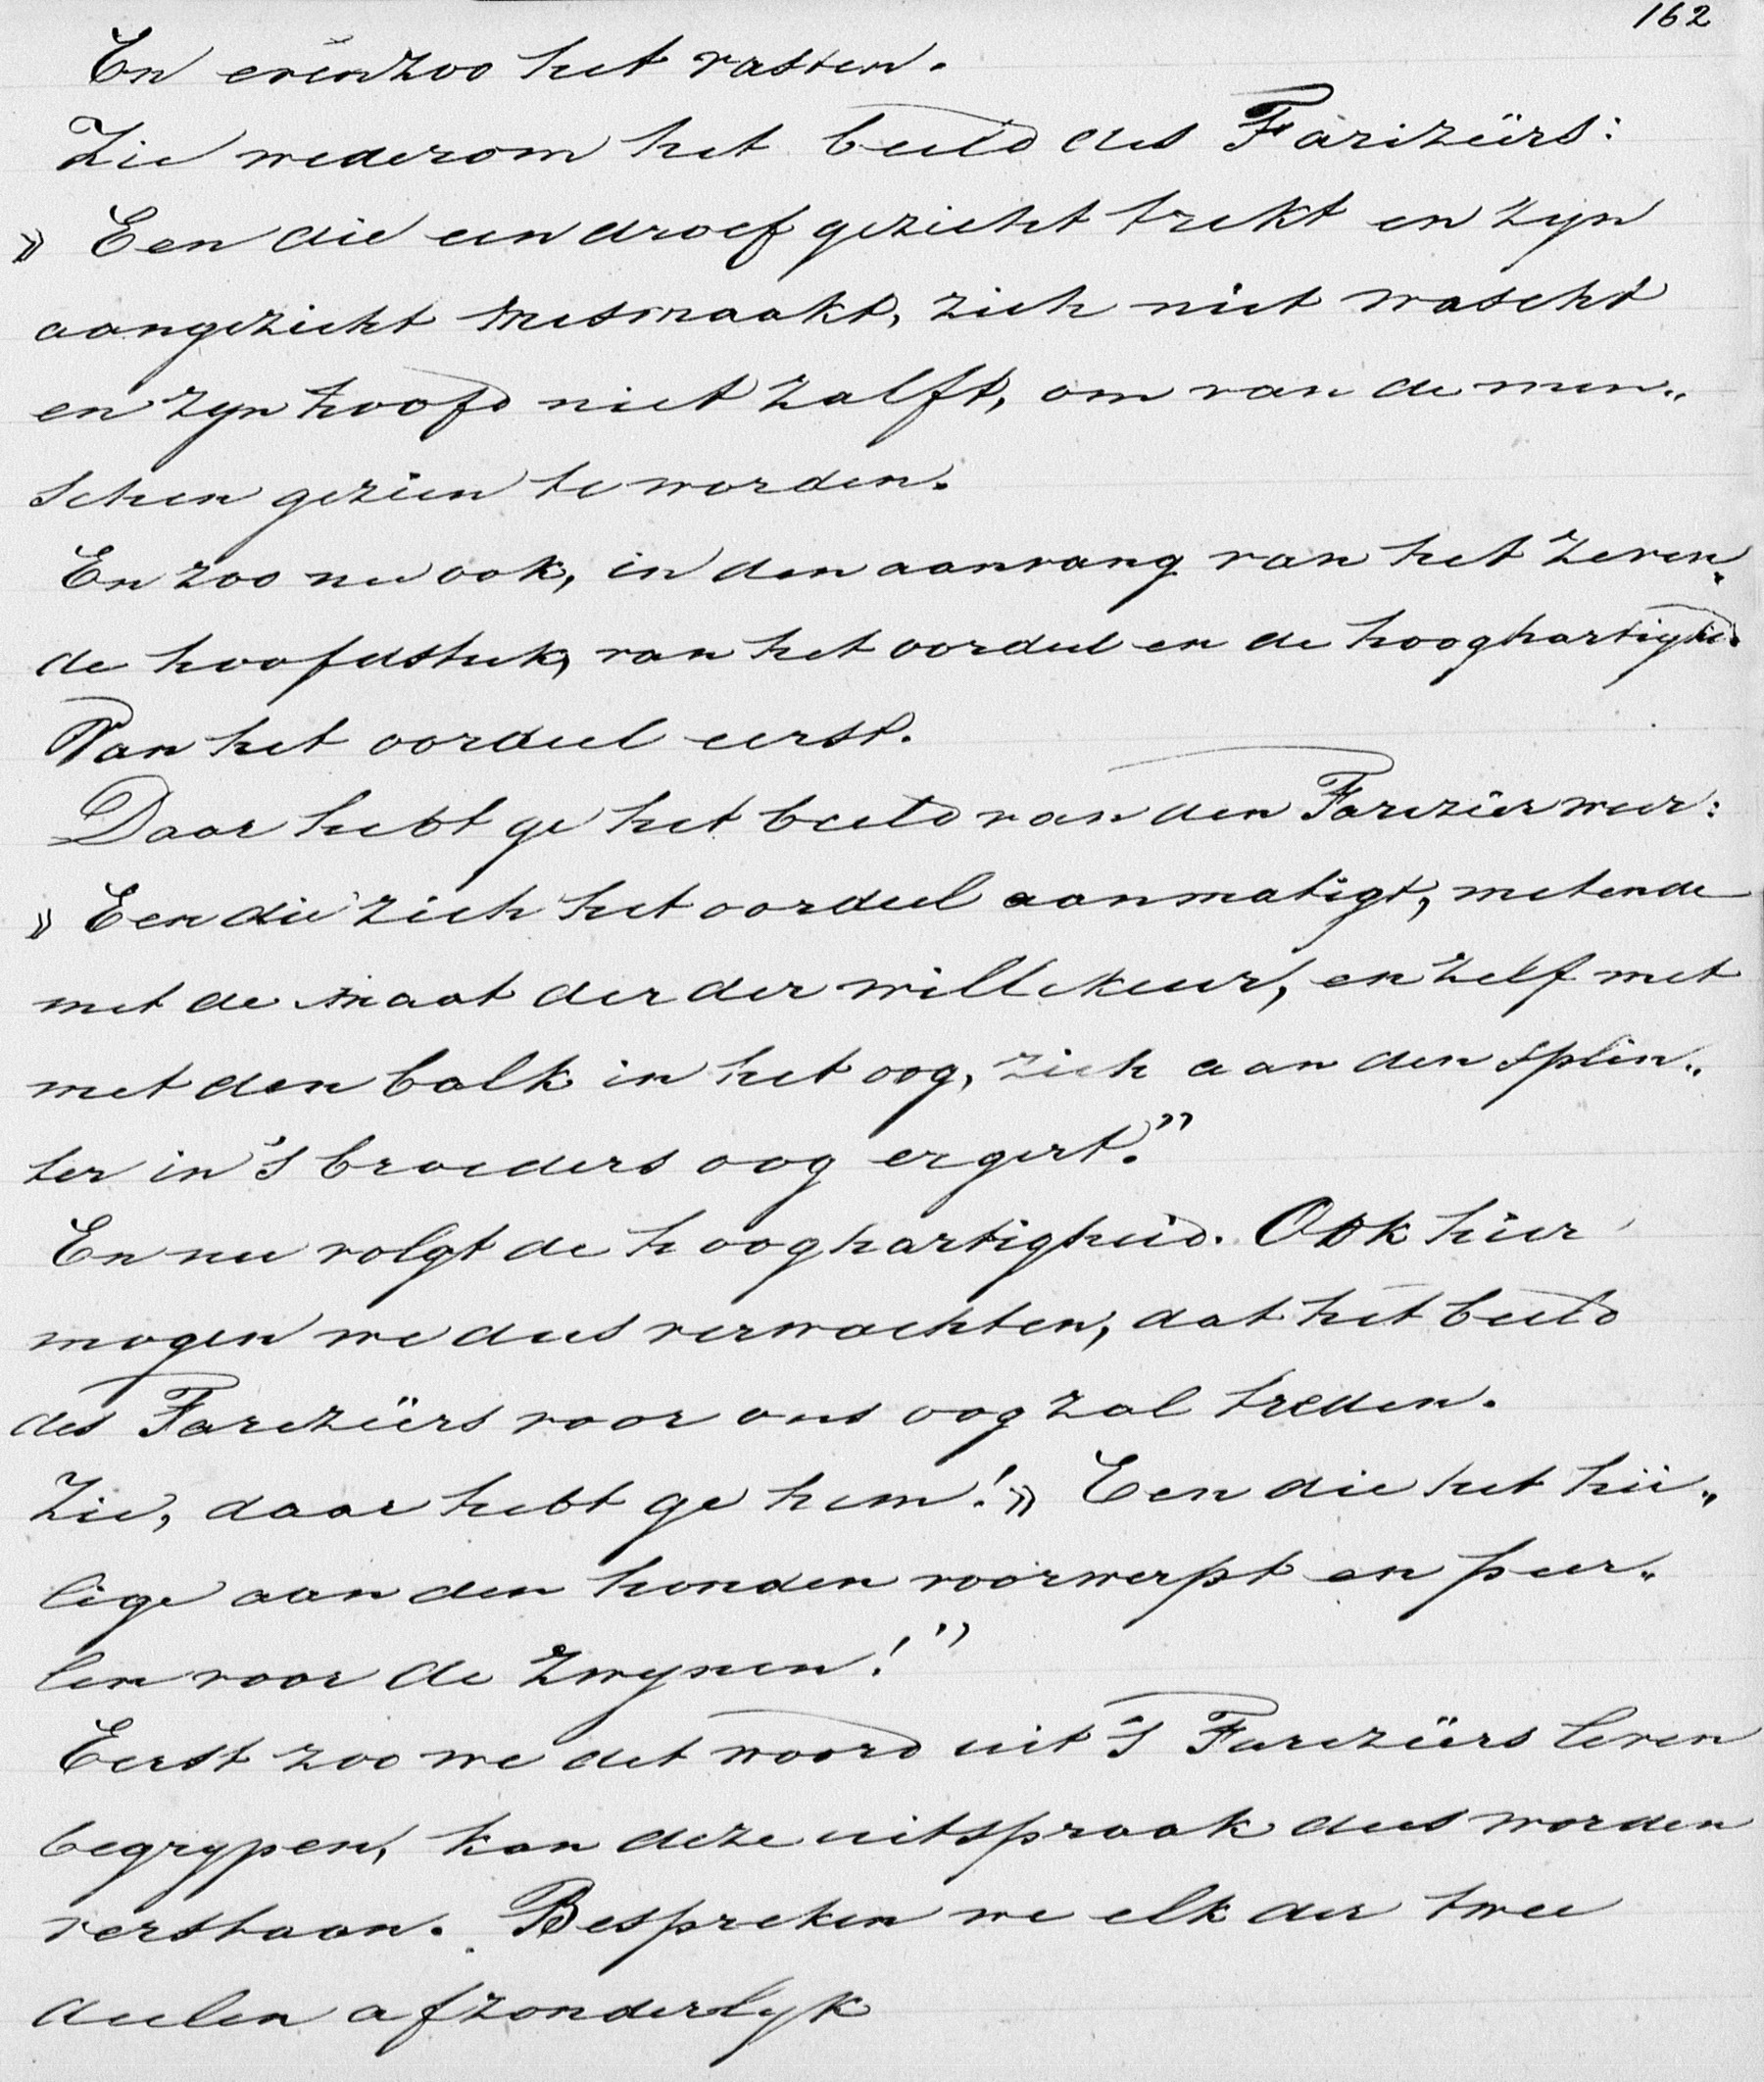 162
En evenzoo het vasten.
Zie wederom het beeld des Farizeërs:
» Een die een droef gezicht trekt en zijn
aangezicht mismaakt, zich niet wascht
en zijn hoofd niet zalft, om van de men„
schen gezien te worden.
En zoo nu ook, in den aanvang van het zeven„
de hoofdstuk, van het oordeel en de hooghartigheid.
Van het oordeel eerst.
Daar hebt ge het beeld van den Farizeër weer:
» Een die zich het oordeel aanmatigt, metende
met de maat der der willekeur, en zelf met
met den balk in het oog, zich aan den splin„
ter in 's broeders oog ergert."
En nu volgt de hooghartigheid. Ook hier
mogen we dus verwachten, dat het beeld
des Farizeërs voor ons oog zal treden.
Zie, daar hebt ge hem! » Een die het hei„
lige aan den honden voorwerpt en peer„
len voor de zwijnen!"
Eerst zoo we dit woord uit 's Farizeërs leven
begrijpen, kan deze uitspraak dus worden
verstaan. Bespreken we elk der twee
deelen afzonderlijk